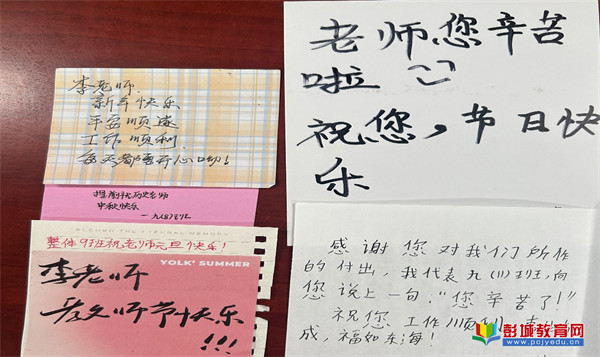 李老师
新年快乐
平安顺遂
工作顺利
每天都要开心呦!
中秋快乐
整体9班祝老师元旦快乐!
YOLK' SUMMER
李老师
教师节快乐
!!!
老师,您辛苦
啦
祝您,节日快
乐
感谢您对我们所作
的付出,我代表九(11)班,向
您说上一句:“您辛苦了!”
祝您工作顺利,
成,福如东海!
彭城教育网
www.pcjyedu.cn